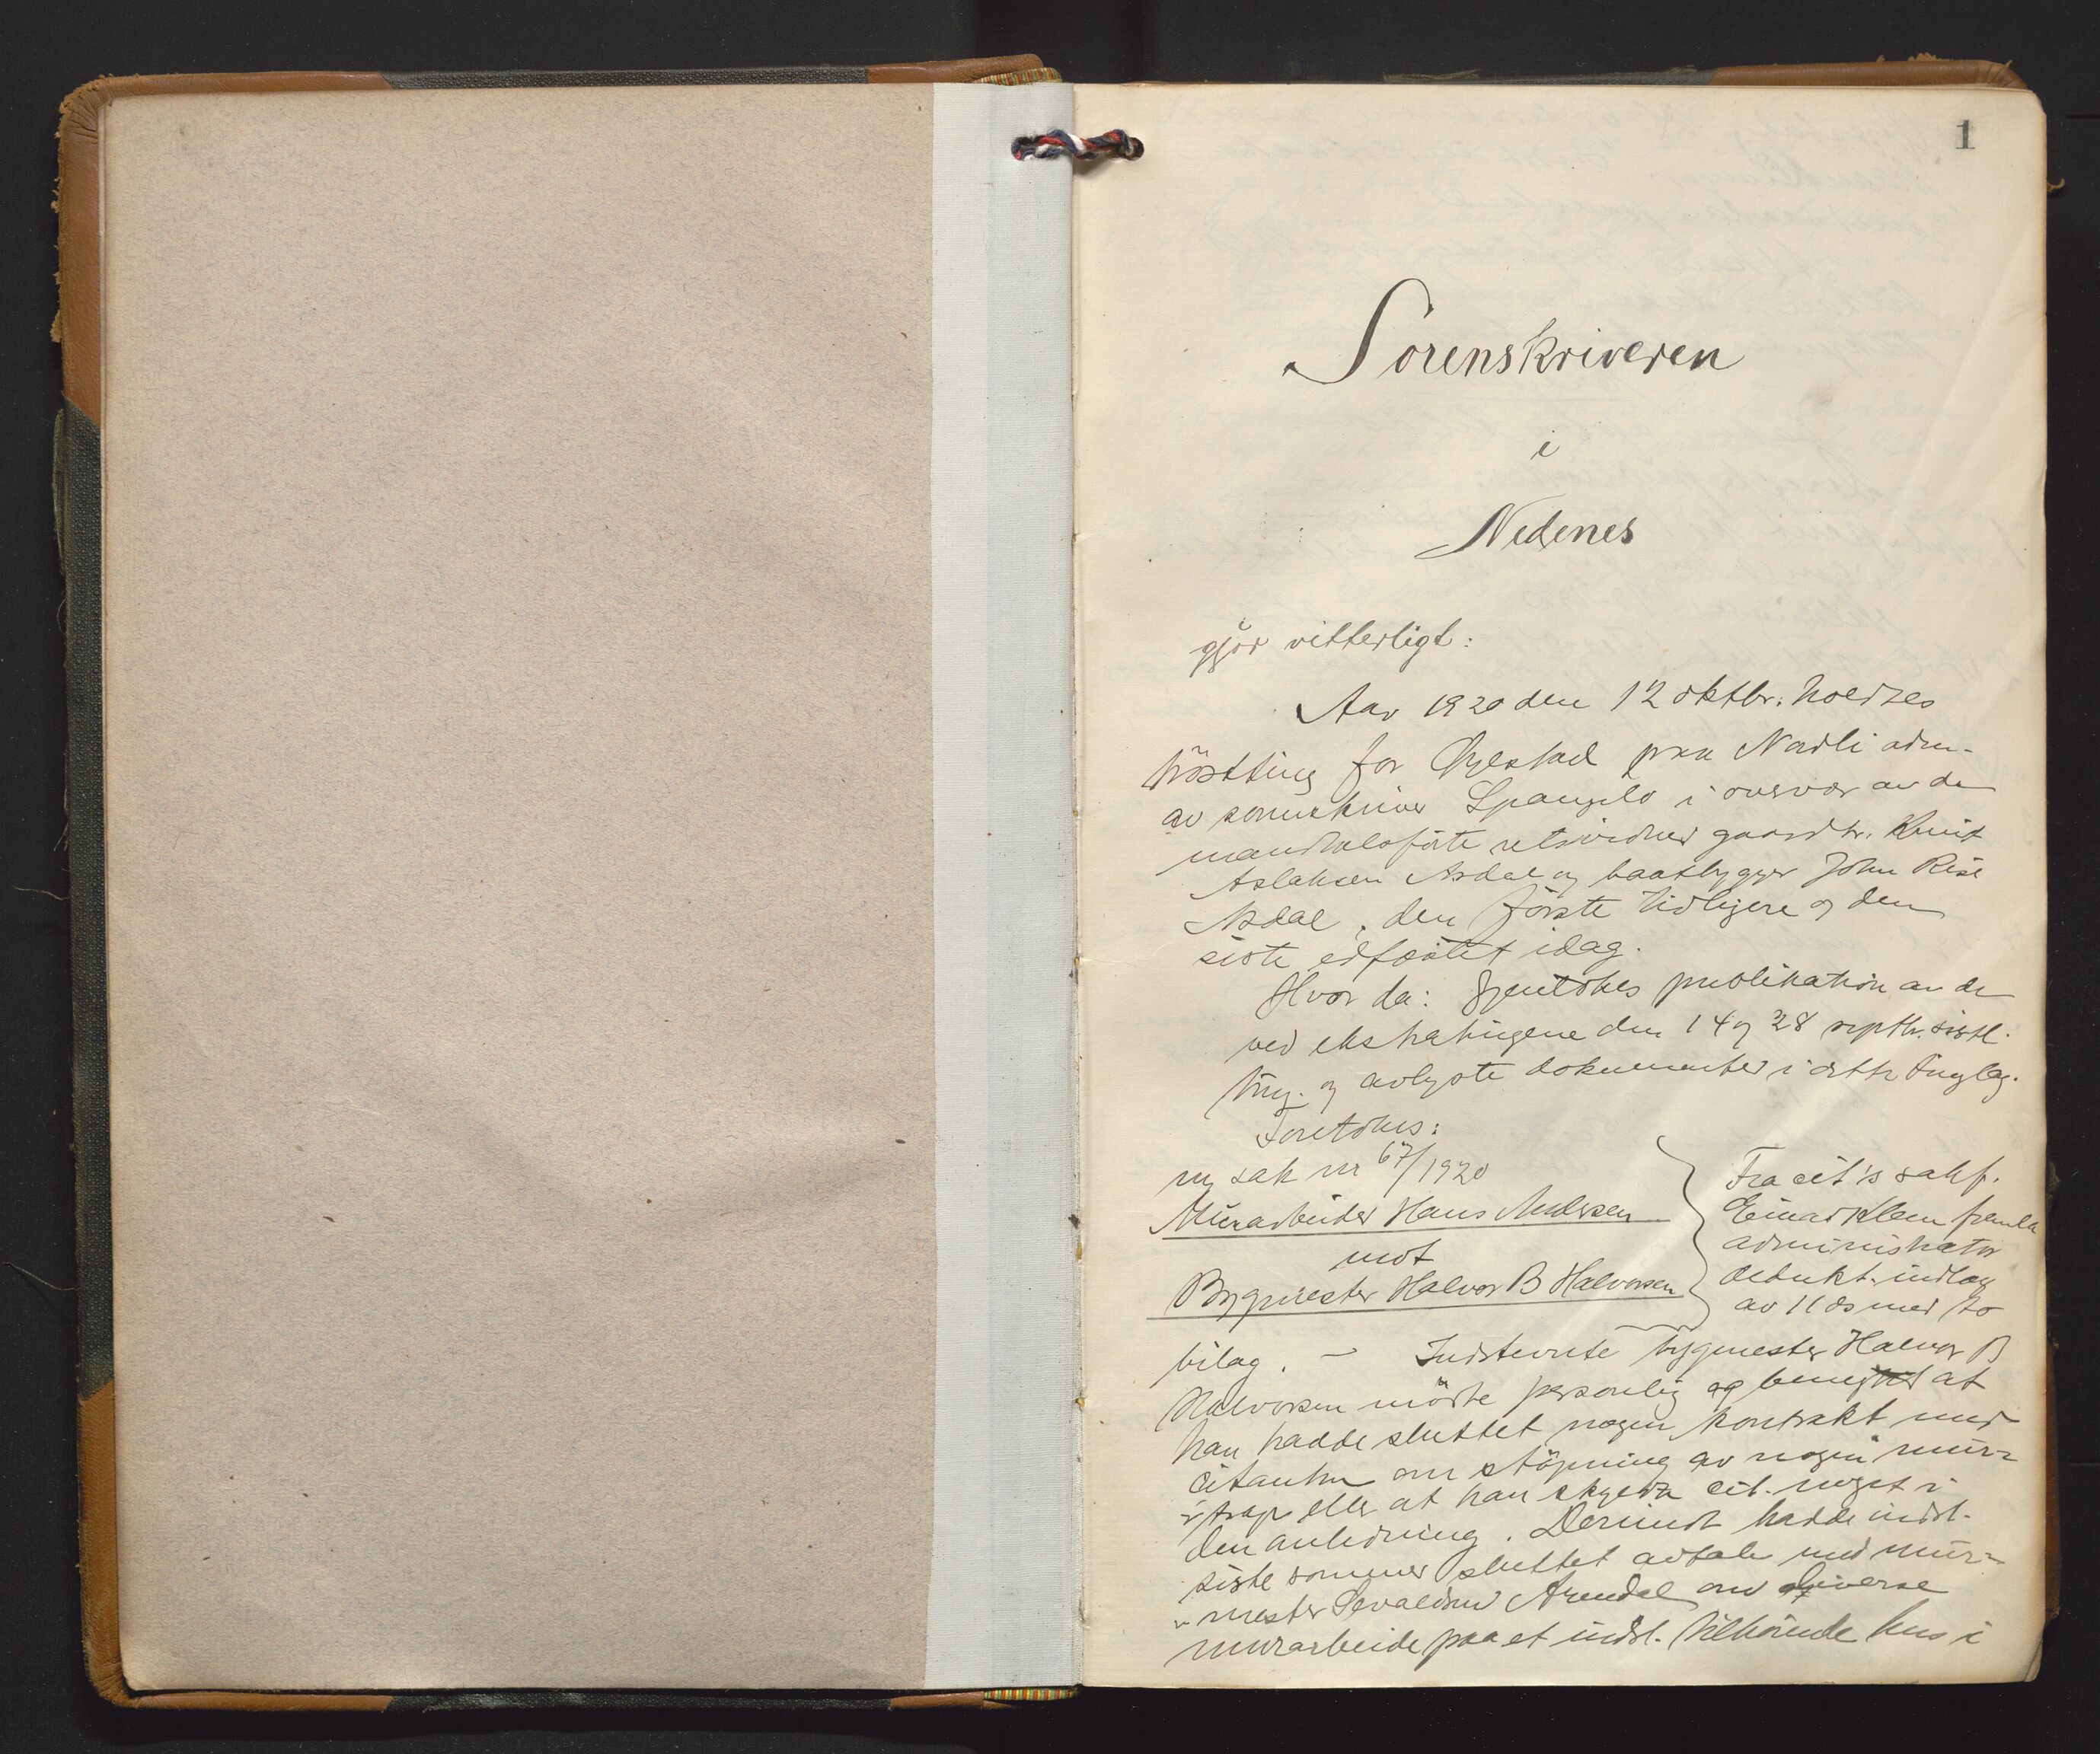 1
Sorenskriveren
i
Nedenes
gjör vitterligt:
Aar 1920 den 12 oktbr. holdtes
höstting for Øyestad paa Nordli adm-
av sorenskriver Spangelo i overvær av de
mandtalsförte retsvidner gaardbr. Knut
Aslaksen Asdal og baatbygger John Rise
Asdal, den förste tidligere og den
siste edfæstet idag.
Hvor da: Gjentokes publikation av de
ved ekstratingene den 14 og 28 septbr. sistl.
ting. og avlyste dokumenter i dette tinglag.
Foretokes:
ny sak nr 67/1920
Murarbeider Hans Andersen
mot
Bygmester Halvor B Halvorsen
Fra cit's sakf.
Einar Klem fremla
administrator
dedukt. indlæg
av 11 ds med to
bilag. – Indstevnte bygmester Halvor B
Halvorsen mötte personlig og benegtet at
han hadde sluttet nogen kontrakt med
citanten om stöpning av nogen mur-
trap eller at han skyldte cit. noget i
den anledning. Derimot hadde indst.
siste sommer sluttet avtale med mur-
mester Sevaldsen Arendal om diverse
murarbeide paa et indst. tilhörende hus i